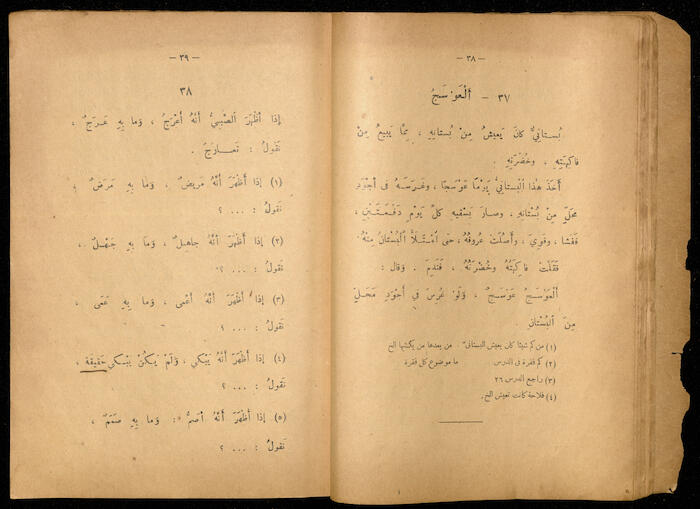 — ٣٨ —
٣٧ – اَلْعَوْسَجُ
بُستانِيٌّ كانَ يَعيشُ مِنْ بُستانِهِ ، مِمَّا يَبيعُ مِنْ
فاكِهَتِهِ ، وخُضْرَتِهِ .
أَخَذَ هٰذا اَلْبُستانِيُّ يَوْمًا عَوْسَجًا ، وغَرَسَهُ فى أَجْوَدِ
مَحَلٍّ مِنْ بُستانِهِ ، وصارَ يَسْقيهِ كلَّ يَوْمٍ دَفْعَتَيْنِ ،
فَفَشا ، وقَوِيَ ، وأَصَّلَتْ عُروقُهُ ، حَتّى امْتَلَأَ اَلْبُسْتانُ مِنْهُ.
فَقَلَّتْ فاكِهَتُهُ وخُضْرَتُهُ ، فَنَدِمَ . وقالَ :
اَلْعَوْسَجُ عَوْسَجٌ ، وَلَوْ غُرِسَ فى أَجْوَدِ مَحَلٍّ
مِنَ اَلبُسْتانِ
(١) من كم شيئا كان يعيش البستانى؟ من يعدها من يكتبها الخ
(٢) كم فقرة فى الدرس ما موضوع كل فقرة
(٣) راجع الدرس ٢٦
(٤) فلاحة كانت تعيش الخ.
— ٣٩ —
٣٨
إذا أَظْهَرَ اَلصَّبِيُّ أَنَّهُ أَعْرَجُ ، وَما بِهِ عَرَجٌ ،
تَقولُ : تَعارَجَ .
(١) إذا أَظْهَرَ أَنَّهُ مَريضٌ ، وَما بِهِ مَرَضٌ ،
تَقولُ : ... ؟
(٢) إذا أَظْهَرَ أَنَّهُ جاهِلٌ ، وَما بِهِ جَهْلٌ ،
تَقولُ : ... ؟
(٣) إذا أَظْهَرَ أَنَّهُ أَعْمَى ، وَما بِهِ عَمًى ،
تَقولُ : ... ؟
(٤) إذا أَظْهَرَ أَنَّهُ يَبْكي ، وَلَمْ يَكُنْ يَبْكي حَقيقَةً ،
تَقولُ : ... ؟
(٥) إذا أَظْهَرَ أَنَّهُ أَصَمُّ : وَما بِهِ صَمَمٌ ،
تَقولُ : ... ؟